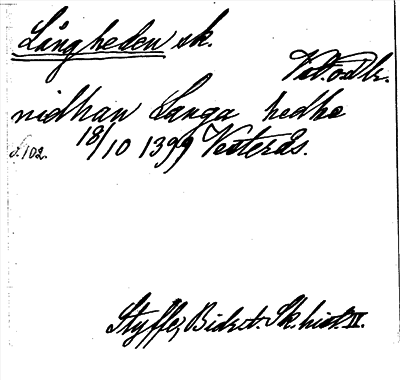 Långheden sk.
nidhan Langa hedhe
s. 102. 18/10 1399 Vesterås.
Styffe, Bidr. t. Sk. hist. II.